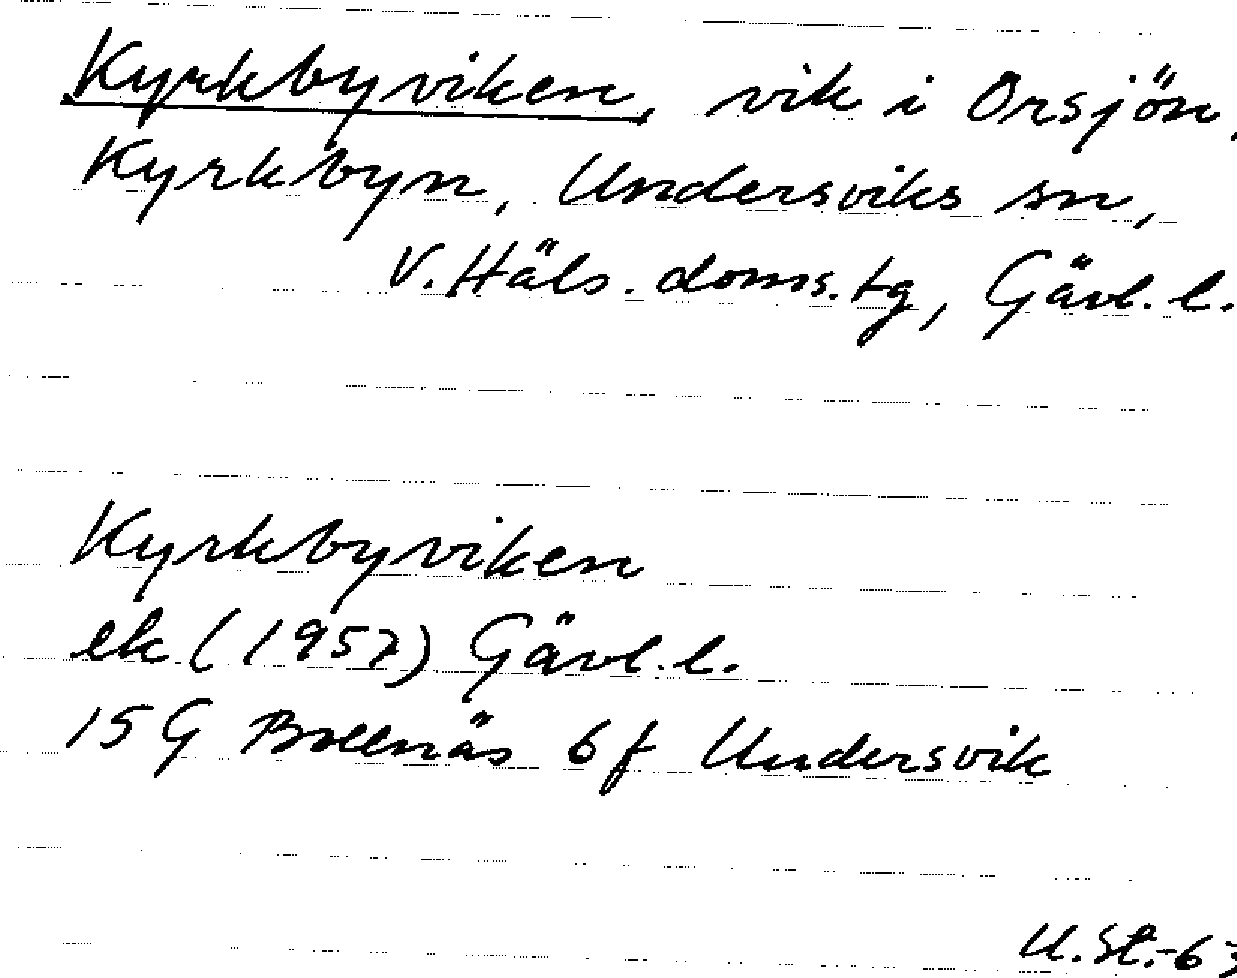 Kyrkbyviken, vik i Orsjön,
Kyrkbyn, Undersviks sn,
V. Häls. doms. tg, Gävl. l.
Kyrkbyviken
ek (1957) Gävl. l.
15 G Bollnäs 6 f Undersvik
U. St. -63